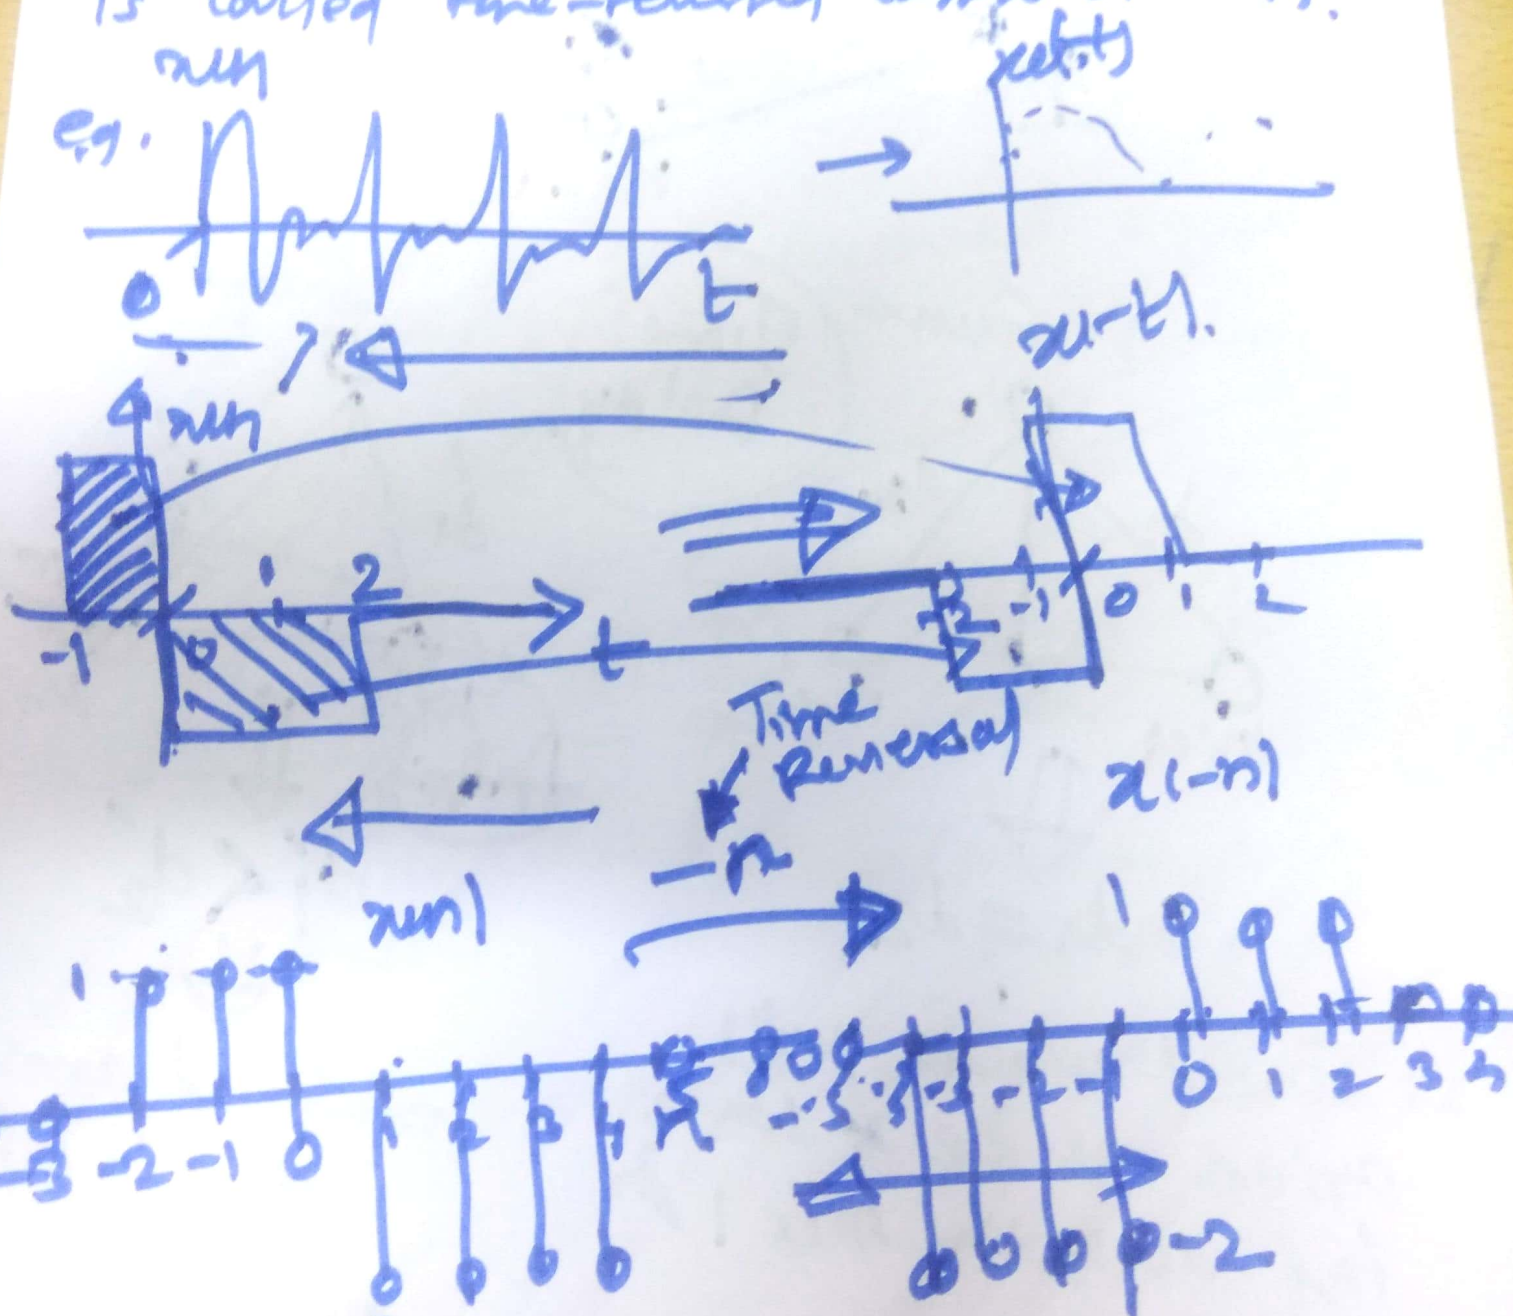 is called time-reversal
x(t)
e.g.
x(-t)
0
t
x(-t).
x(t)
1 2
-1 0
t
-2 -1 0 1 2
Time
Reversal
x(-n)
-n
x(n)
1
1
-3 -2 -1 0 1 2 3 4 5
n
-5 -3 -2 -1 0 1 2 3 4
-2